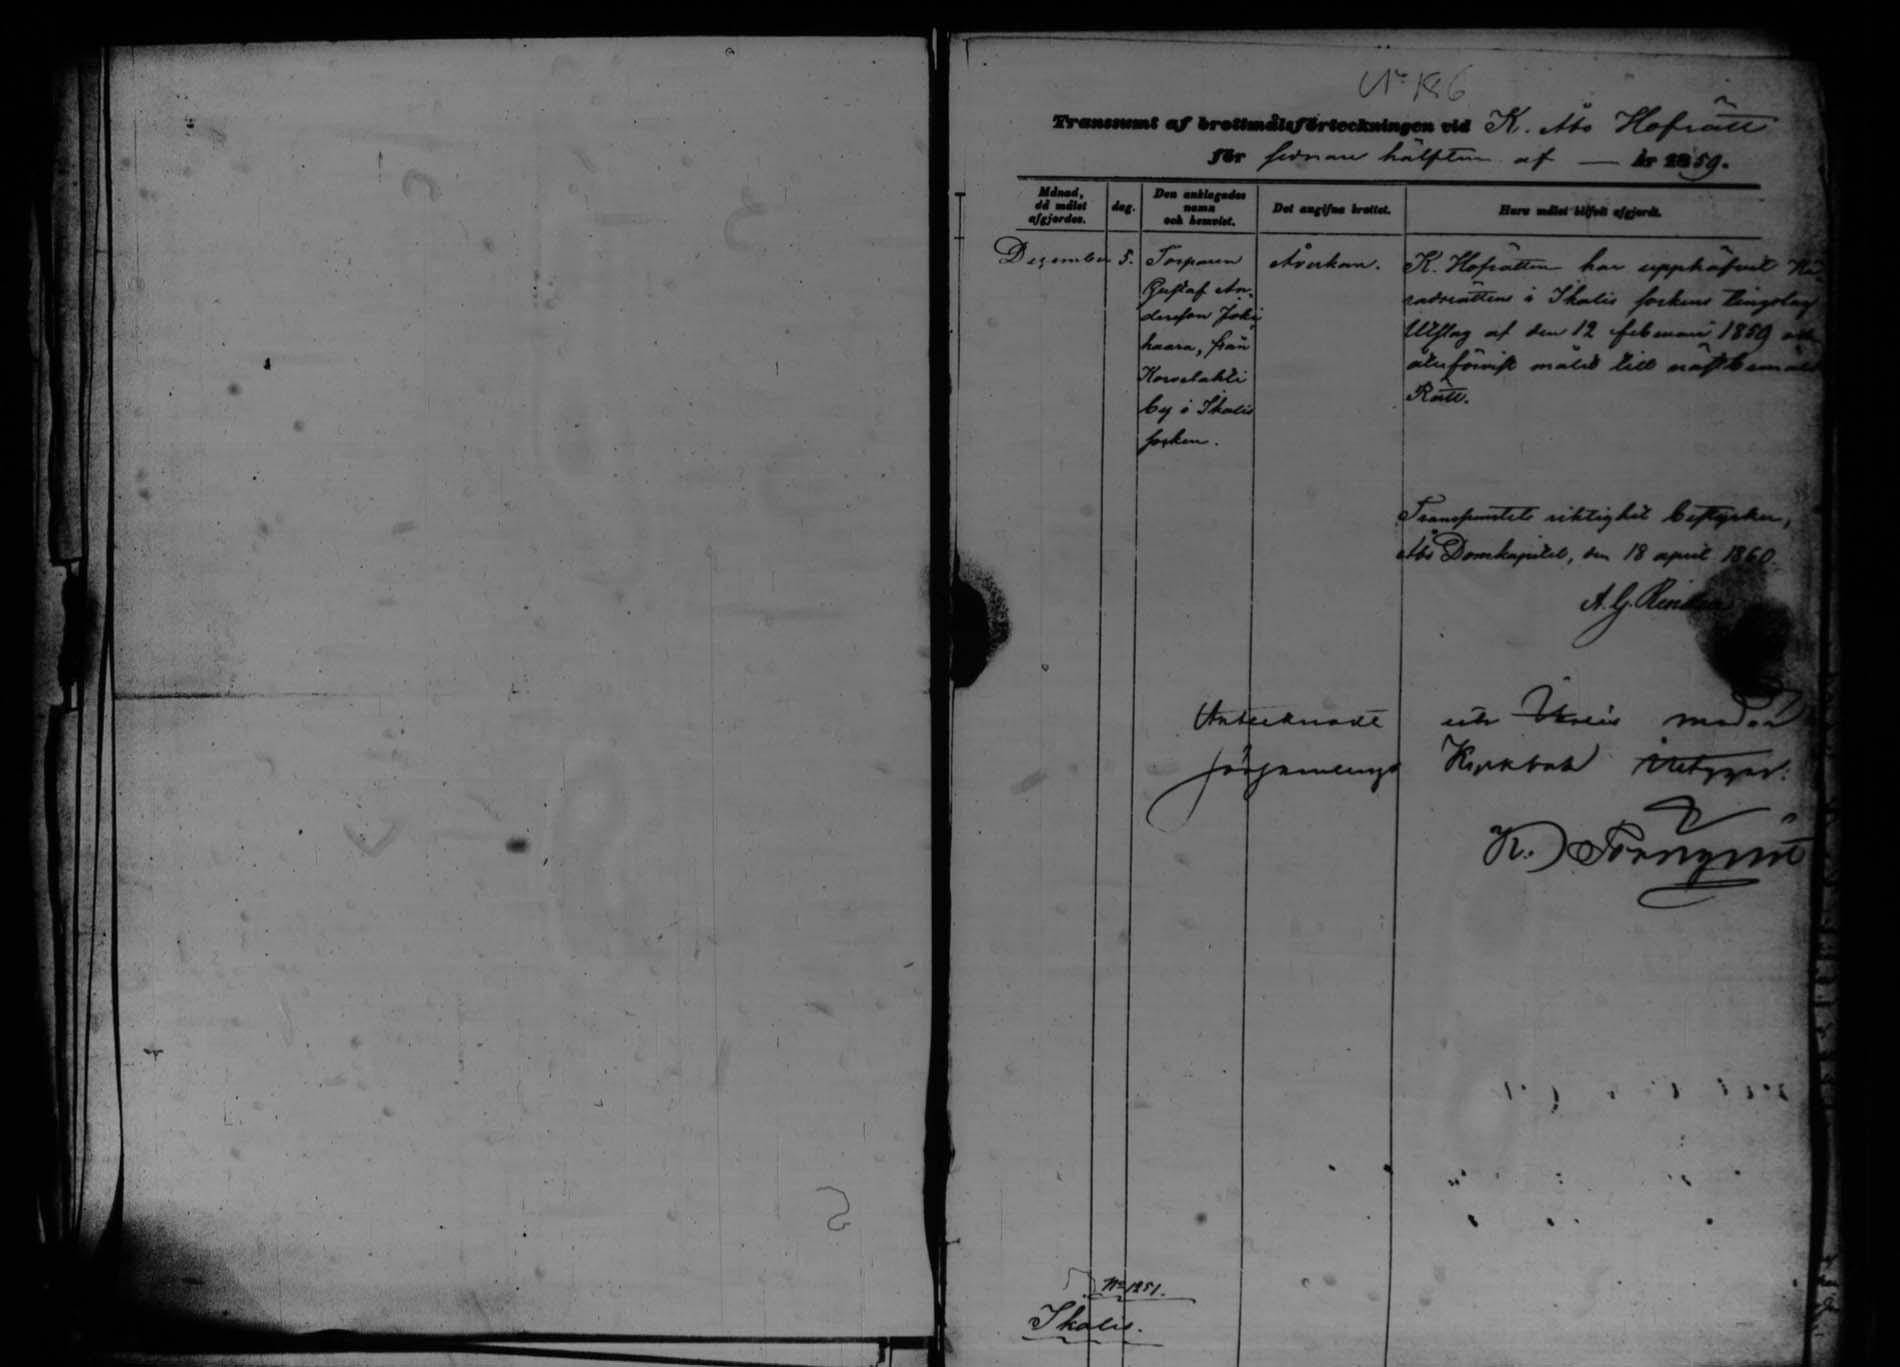 N:o 186
Transsumt af brottmålsförteckningen vid K. Åbo Hofrätt
för sednare hälften af — år 1859.
Månad, då målet afgjordes.
dag.
Den anklagades namn och hemvist.
Det angifna brottet.
Huru målet blifvit afgjordt.
Dezember 5.
Torparen
Gustaf An-
dersson Joki
haara, från
Kovelahti
by i Ikalis
socken.
Åverkan.
K. Hofrätten har upphäfvit Hä-
radsrättens i Ikalis sockens tingslag
Utslag af den 12 februari 1859 och
återförvist målet till näst bemälde
Rätt.
Transsumtets riktighet bestyrker,
Åbo Domkapitel, den 18 april 1860.
A. G.
Antecknadt uti
församlings Kyrkbok
K. Törnqvist
N:o 1251.
Ikalis.